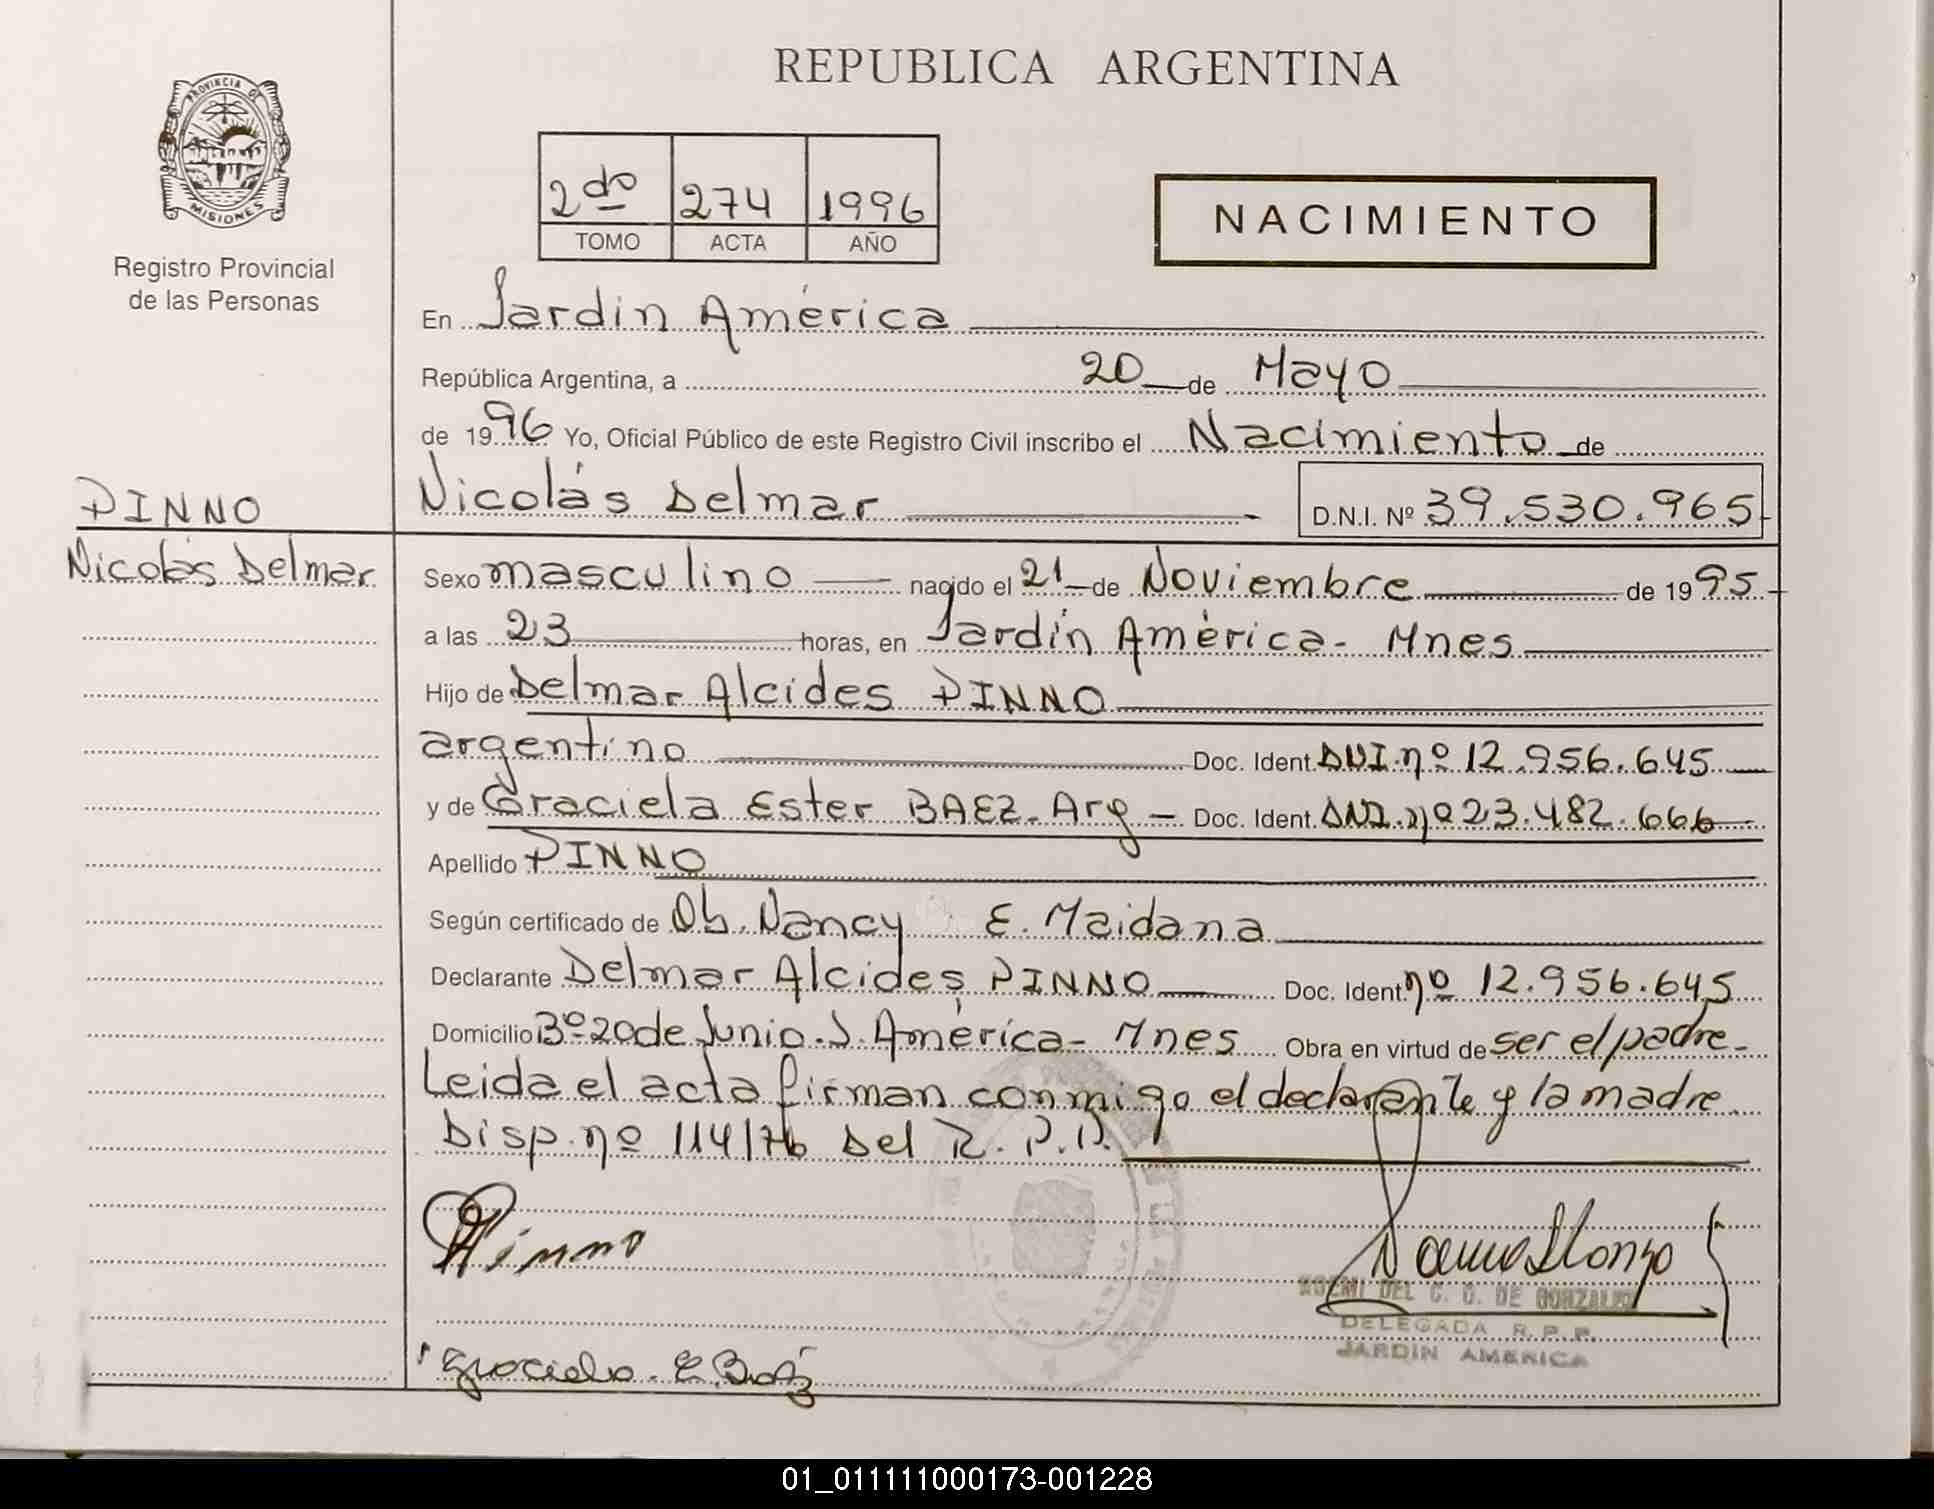 REPUBLICA ARGENTINA
PROVINCIA DE
MISIONES
Registro Provincial
de las Personas
2do 274 1996
TOMO ACTA AÑO
NACIMIENTO
En Jardín América
República Argentina, a 20 de Mayo
de 1996 Yo, Oficial Público de este Registro Civil inscribo el Nacimiento de
PINNO
Nicolás Delmar D.N.I. Nº 39.530.965
Nicolás Delmar
Sexo masculino nacido el 21 de Noviembre de 1995
a las 23 horas, en Jardín América - Mnes
Hijo de Delmar Alcides PINNO
argentino Doc. Ident. DNI. nº 12.956.645
y de Graciela Ester BAEZ - Arg - Doc. Ident. DNI. nº 23.482.666
Apellido PINNO
Según certificado de Ob. Nancy E. Maidana
Declarante Delmar Alcides PINNO Doc. Ident. nº 12.956.645
Domicilio Bº 20 de Junio. J. América - Mnes Obra en virtud de ser el padre -
Leida el acta firman conmigo el declarante y la madre
Disp. nº 114/76 del R. P. P.
Pinno
NOEMI DEL C. O. DE GONZALEZ
DELEGADA R. P. P.
JARDIN AMERICA
Graciela E. Baéz
01_011111000173-001228